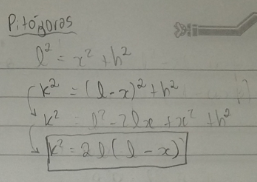 Pitágoras
l² = x² + h²
k² = (l - x)² + h²
k² = l² - 2lx + x² + h²
k² = 2l(l - x)